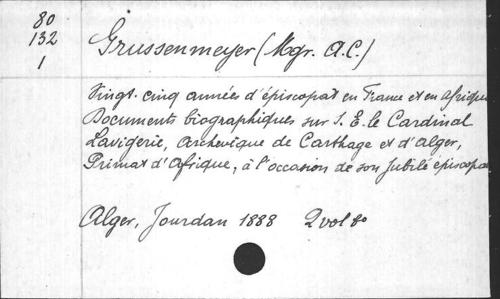 80
132
1
Grussenmeyer (Mgr. A.C.)
Vingt-cinq années d'épiscopat en France et en Afrique
Documents biographiques sur S. E. le Cardinal
Lavigerie, Archevique de Carthage et d'Alger,
Primat d'Afrique, à l'occasion de son Jubilé épiscopa
Alger, Jourdan 1888 2 vol 8o